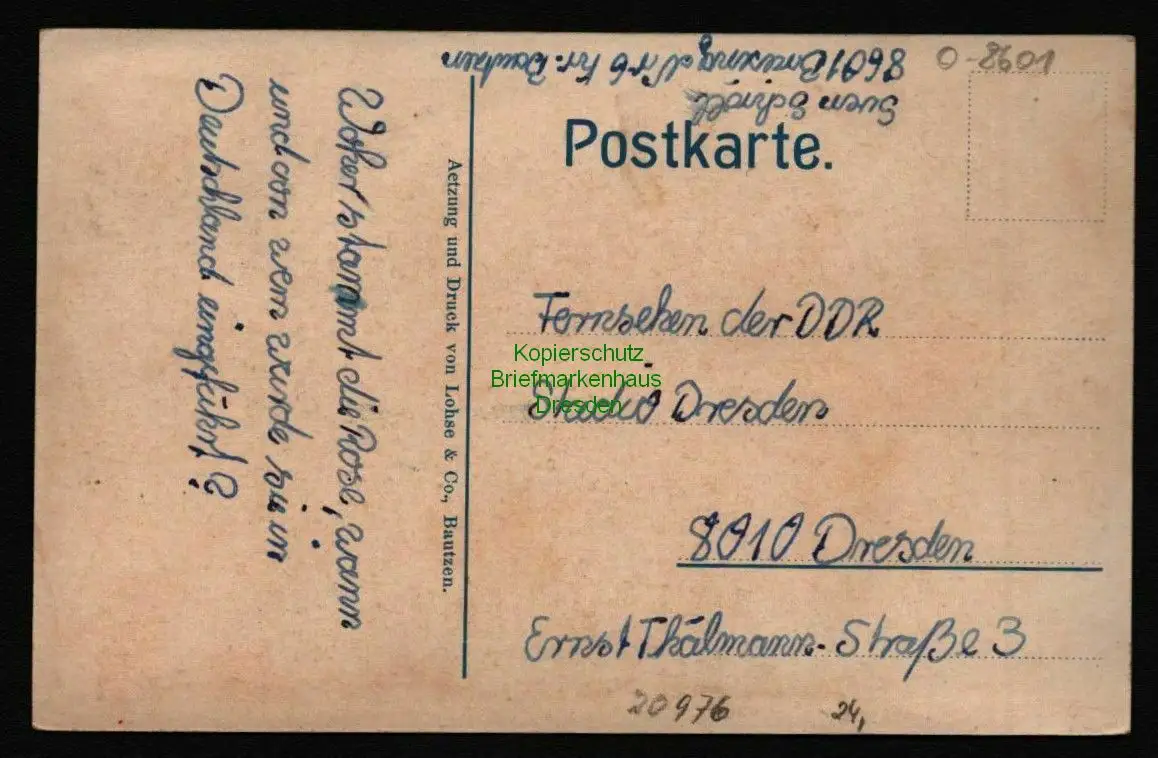 O-8601
8601 Nr 6 Kr. Bautzen
Sven
Postkarte.
Woher stammt die Rose, wann
und von wem wurde sie in
Deutschland eingeführt?
Aetzung und Druck von Lohse & Co., Bautzen.
Fernsehen der DDR
Studio Dresden
8010 Dresden
Ernst Thälmann-Straße 3
Kopierschutz
Briefmarkenhaus
Dresden
20976
24,